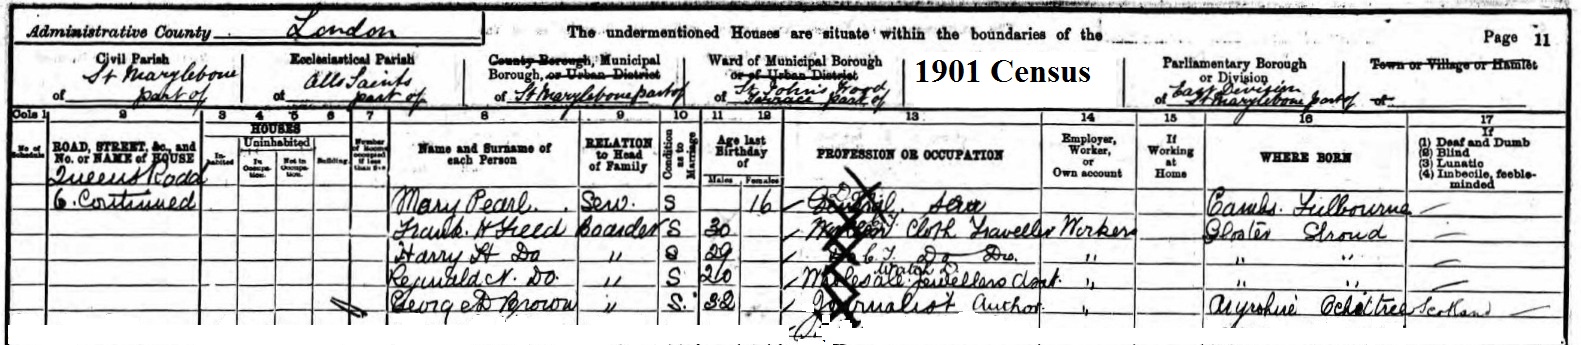 Administrative County London The undermentioned Houses are situate within the boundaries of the Page 11
Civil Parish Ecclesiastical Parish County Borough, Municipal Ward of Municipal Borough 1901 Census Parliamentary Borough Town or Village or Hamlet
St Marylebone All Saints Borough, or Urban District or of Urban District or Division
of part of of part of of St Marylebone part of of St John's Wood Terrace part of of East Division St Marylebone part of of
Cols 1 2 3 4 5 6 7 8 9 10 11 12 13 14 15 16 17
No. of Schedule ROAD, STREET, &c., and No. or NAME of HOUSE HOUSES Inhabited Uninhabited In Occupation. Not in Occupation. Building. Number of Rooms occupied if less than five Name and Surname of each Person RELATION to Head of Family Condition as to Marriage Age last Birthday of Males Females PROFESSION OR OCCUPATION Employer, Worker, or Own account If Working at Home WHERE BORN If (1) Deaf and Dumb (2) Blind (3) Lunatic (4) Imbecile, feeble-minded
Queens Road
6. Continued Mary Pearl Serv. S 16 General Serv Cambs. Fulbourne
Frank. H Freed Boarder S 30 Cloth Traveller Worker Gloster Stroud
Harry H Do " S 29 C. T. Do Do. " " "
Reginald N. Do. " S 20 Wholesale Jewellers Asst. " " "
George D Brown " S. 32 Journalist Author " Ayrshire Ochiltree Scotland